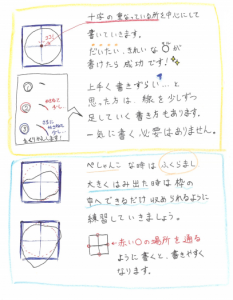 十字の重なっている所を中心にして
書いていきます。
だいたい、きれいな○が
書けたら成功です!
上手く書きずらい…と
思った方は、線を少しずつ
足していく書き方もあります。
一気に書く必要はありません。
①
②
③
ぺしゃんこな時はふくらまし
大きくはみ出た時は枠の
中へできるだけ収められるように
練習していきましょう。
赤い○の場所を通る
ように書くと、書きやすく
なります。